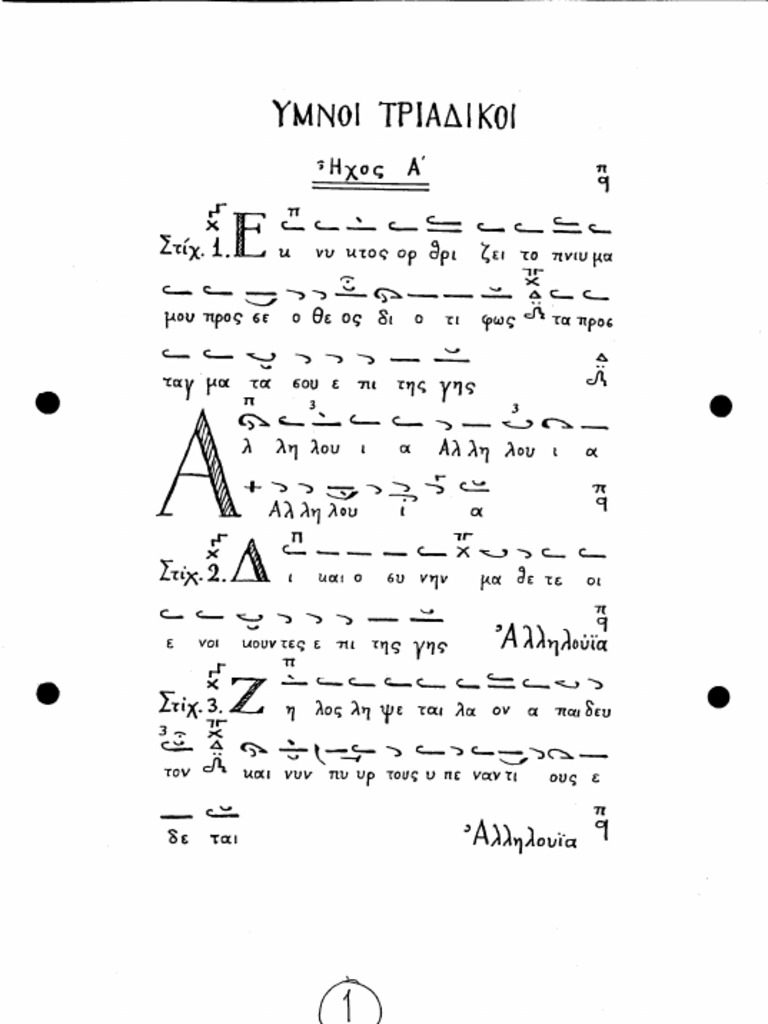 ΥΜΝΟΙ ΤΡΙΑΔΙΚΟΙ
Ἦχος Α΄
π
q
π
Στίχ. 1. Ε κ νυ κτος ορ θρι ζει το πνιυ μα
μου προς σε ο θε ος δι ο τι φως Δ τα προς
ταγ μα τα σου ε πι της γης Δ
π 3 3
Α λ λη λου ι α Αλ λη λου ι α
Αλ λη λου ι α π q
π
Στίχ. 2. Δ ι και ο συ νην μα θε τε οι
ε νοι κουν τες ε πι της γης Ἀλληλούϊα π q
π
Στίχ. 3. Ζ η λος λη ψε ται λα ον α παι δευ
3 Δ
τον και νυν πυ υρ τους υ πε ναν τι ους ε
δε ται Ἀλληλουϊα π q
1